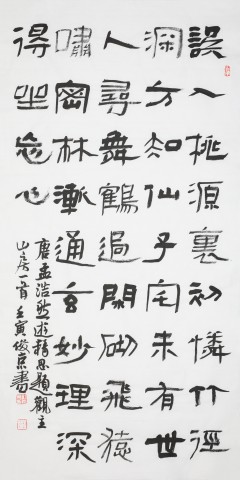 誤入桃源裏初憐竹徑
深方知仙子宅未有世
人尋舞鶴過閑砌飛猿
嘯密林漸通玄妙理深
得坐忘心
唐孟浩然遊精思題觀主
山房一首壬寅俊京書